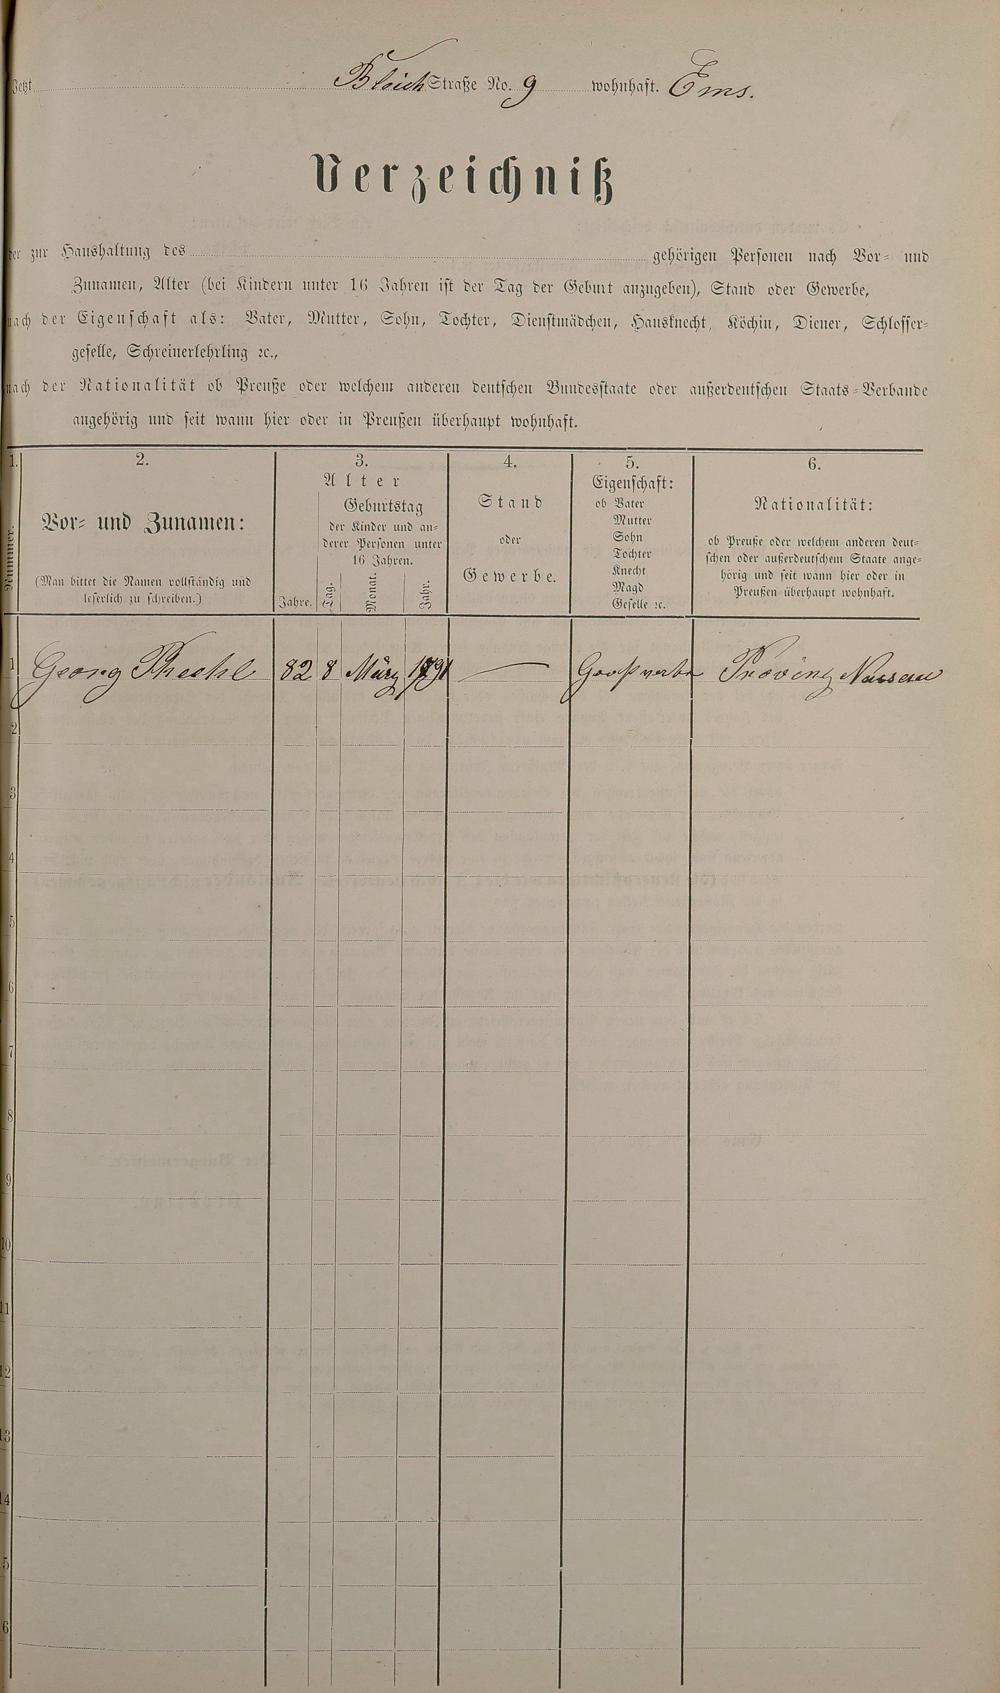 Jetzt Bleich Straße No. 9 wohnhaft. Ems.
Verzeichniß
der zur Haushaltung des gehörigen Personen nach Vor- und
Zunamen, Alter (bei Kindern unter 16 Jahren ist der Tag der Geburt anzugeben), Stand oder Gewerbe,
nach der Eigenschaft als: Vater, Mutter, Sohn, Tochter, Dienstmädchen, Hausknecht, Köchin, Diener, Schlosser-
geselle, Schreinerlehrling ꝛc.,
nach der Nationalität ob Preuße oder welchem anderen deutschen Bundesstaate oder außerdeutschen Staats-Verbande
angehörig und seit wann hier oder in Preußen überhaupt wohnhaft.
1.
Nummer.
2.
Vor- und Zunamen:
(Man bittet die Namen vollständig und
leserlich zu schreiben.)
3.
Alter
Geburtstag
der Kinder und an-
derer Personen unter
16 Jahren.
Jahre. Tag. Monat. Jahr.
4.
Stand
oder
Gewerbe.
5.
Eigenschaft:
ob Vater
Mutter
Sohn
Tochter
Knecht
Magd
Geselle ꝛc.
6.
Nationalität:
ob Preuße oder welchem anderen deut-
schen oder außerdeutschem Staate ange-
hörig und seit wann hier oder in
Preußen überhaupt wohnhaft.
1 Georg 82 8 März — Großvater Provinz Nassau
2
3
4
5
6
7
8
9
10
11
12
13
14
5
6